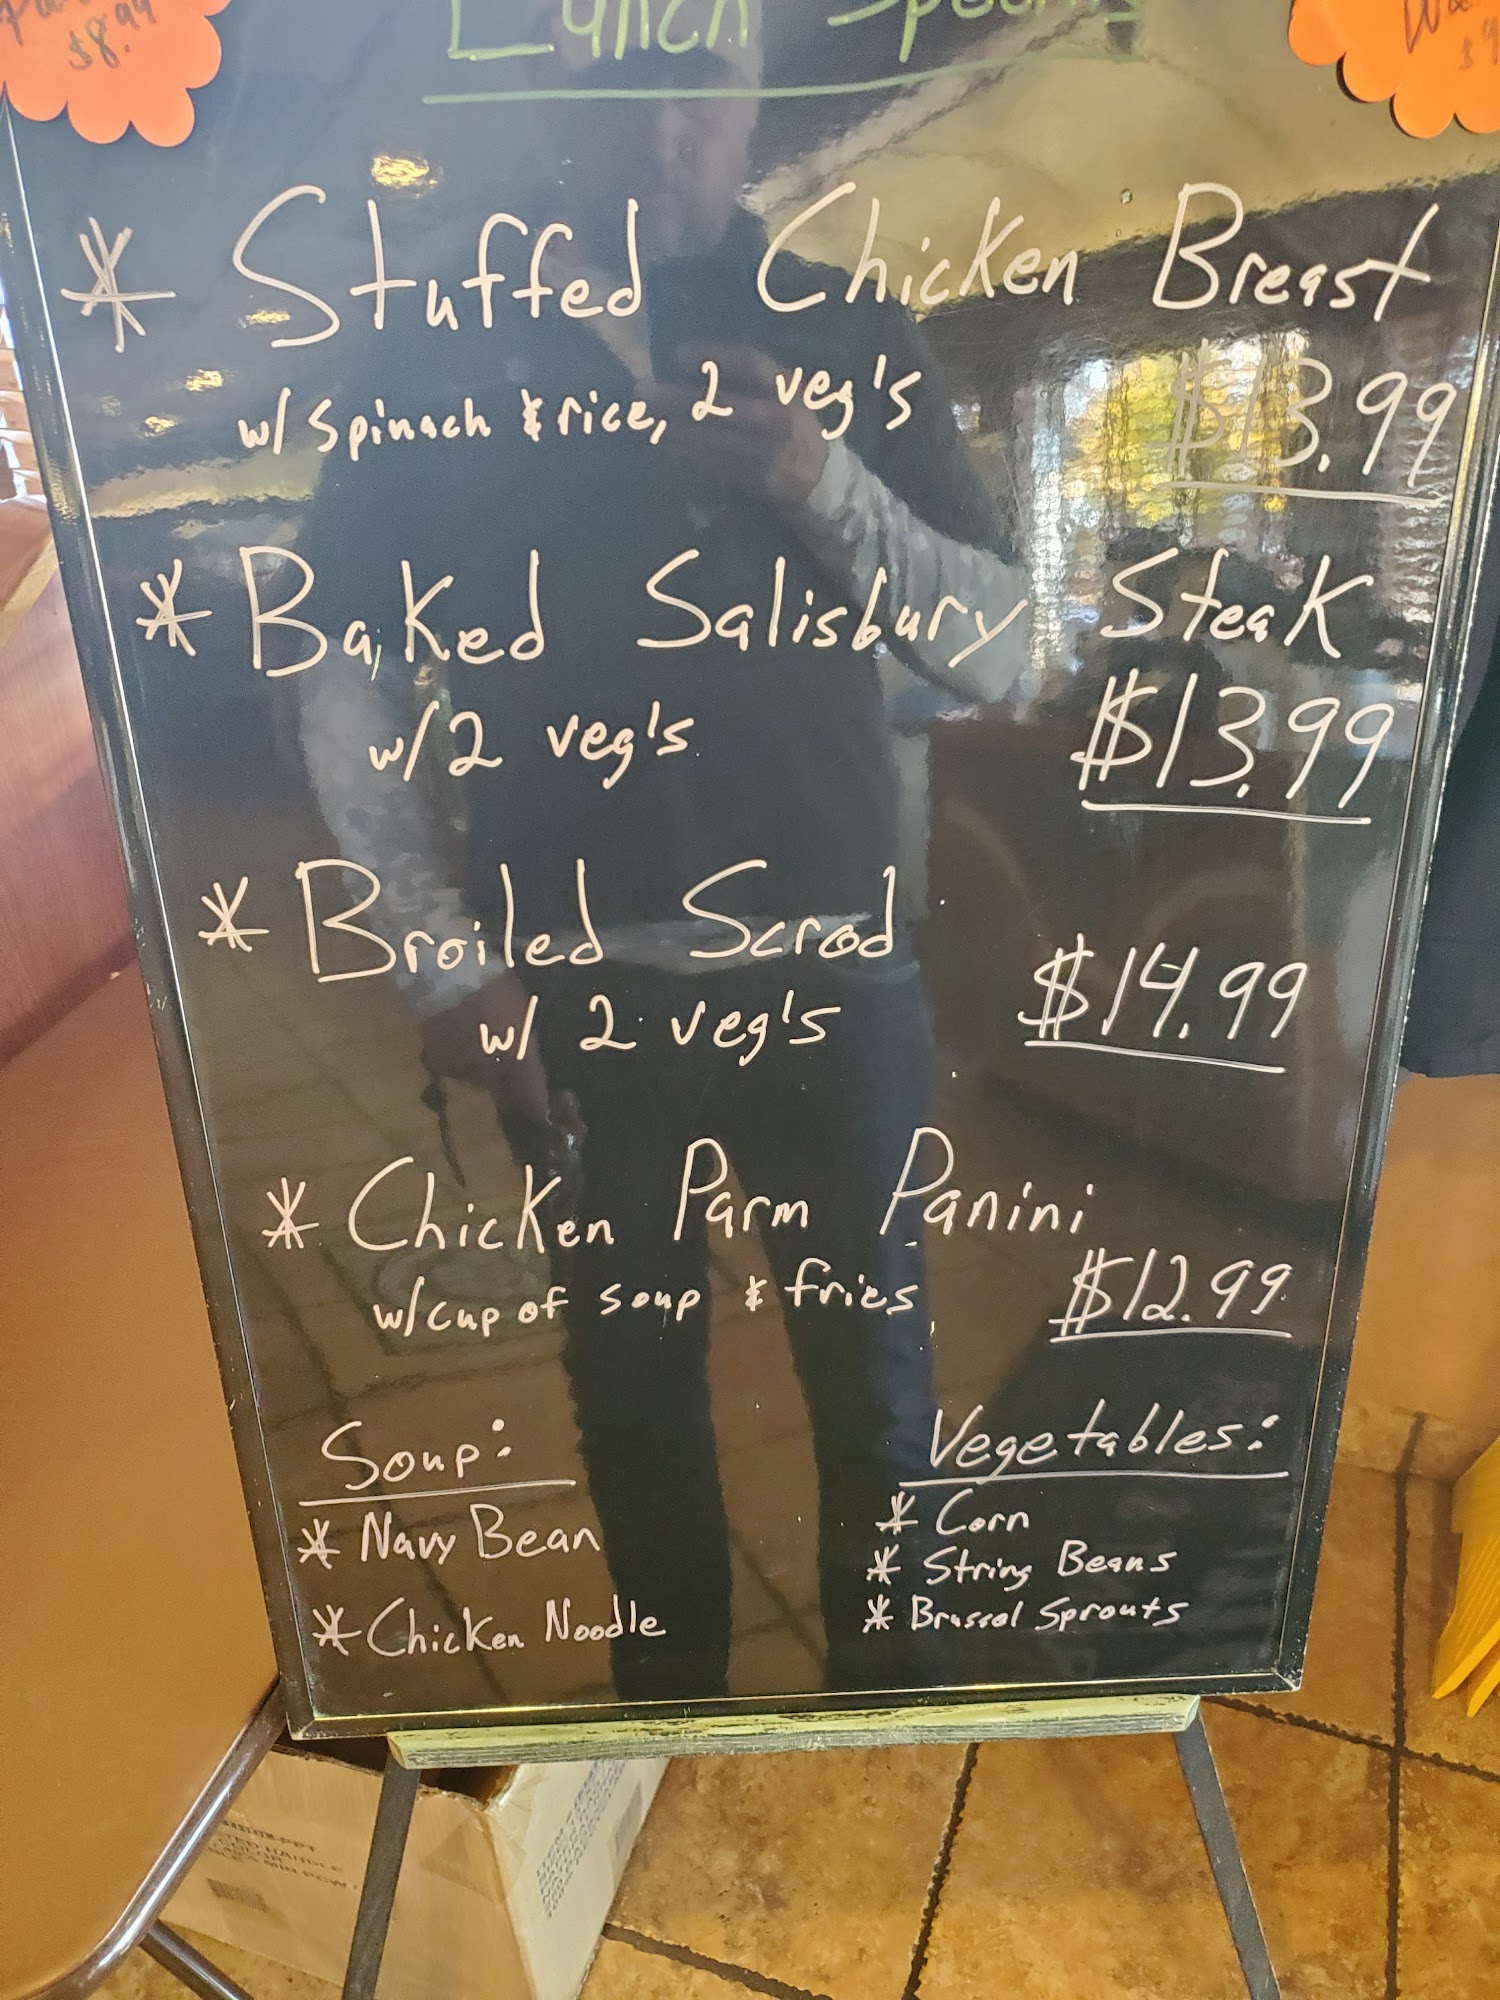 $8.99
Lunch Specials
* Stuffed Chicken Breast
w/ spinach & rice, 2 veg's
$13.99
* Baked Salisbury Steak
w/ 2 veg's
$13.99
* Broiled Scrod
w/ 2 veg's
$14.99
* Chicken Parm Panini
w/ cup of soup & fries
$12.99
Soup:
* Navy Bean
* Chicken Noodle
Vegetables:
* Corn
* String Beans
* Brussel Sprouts